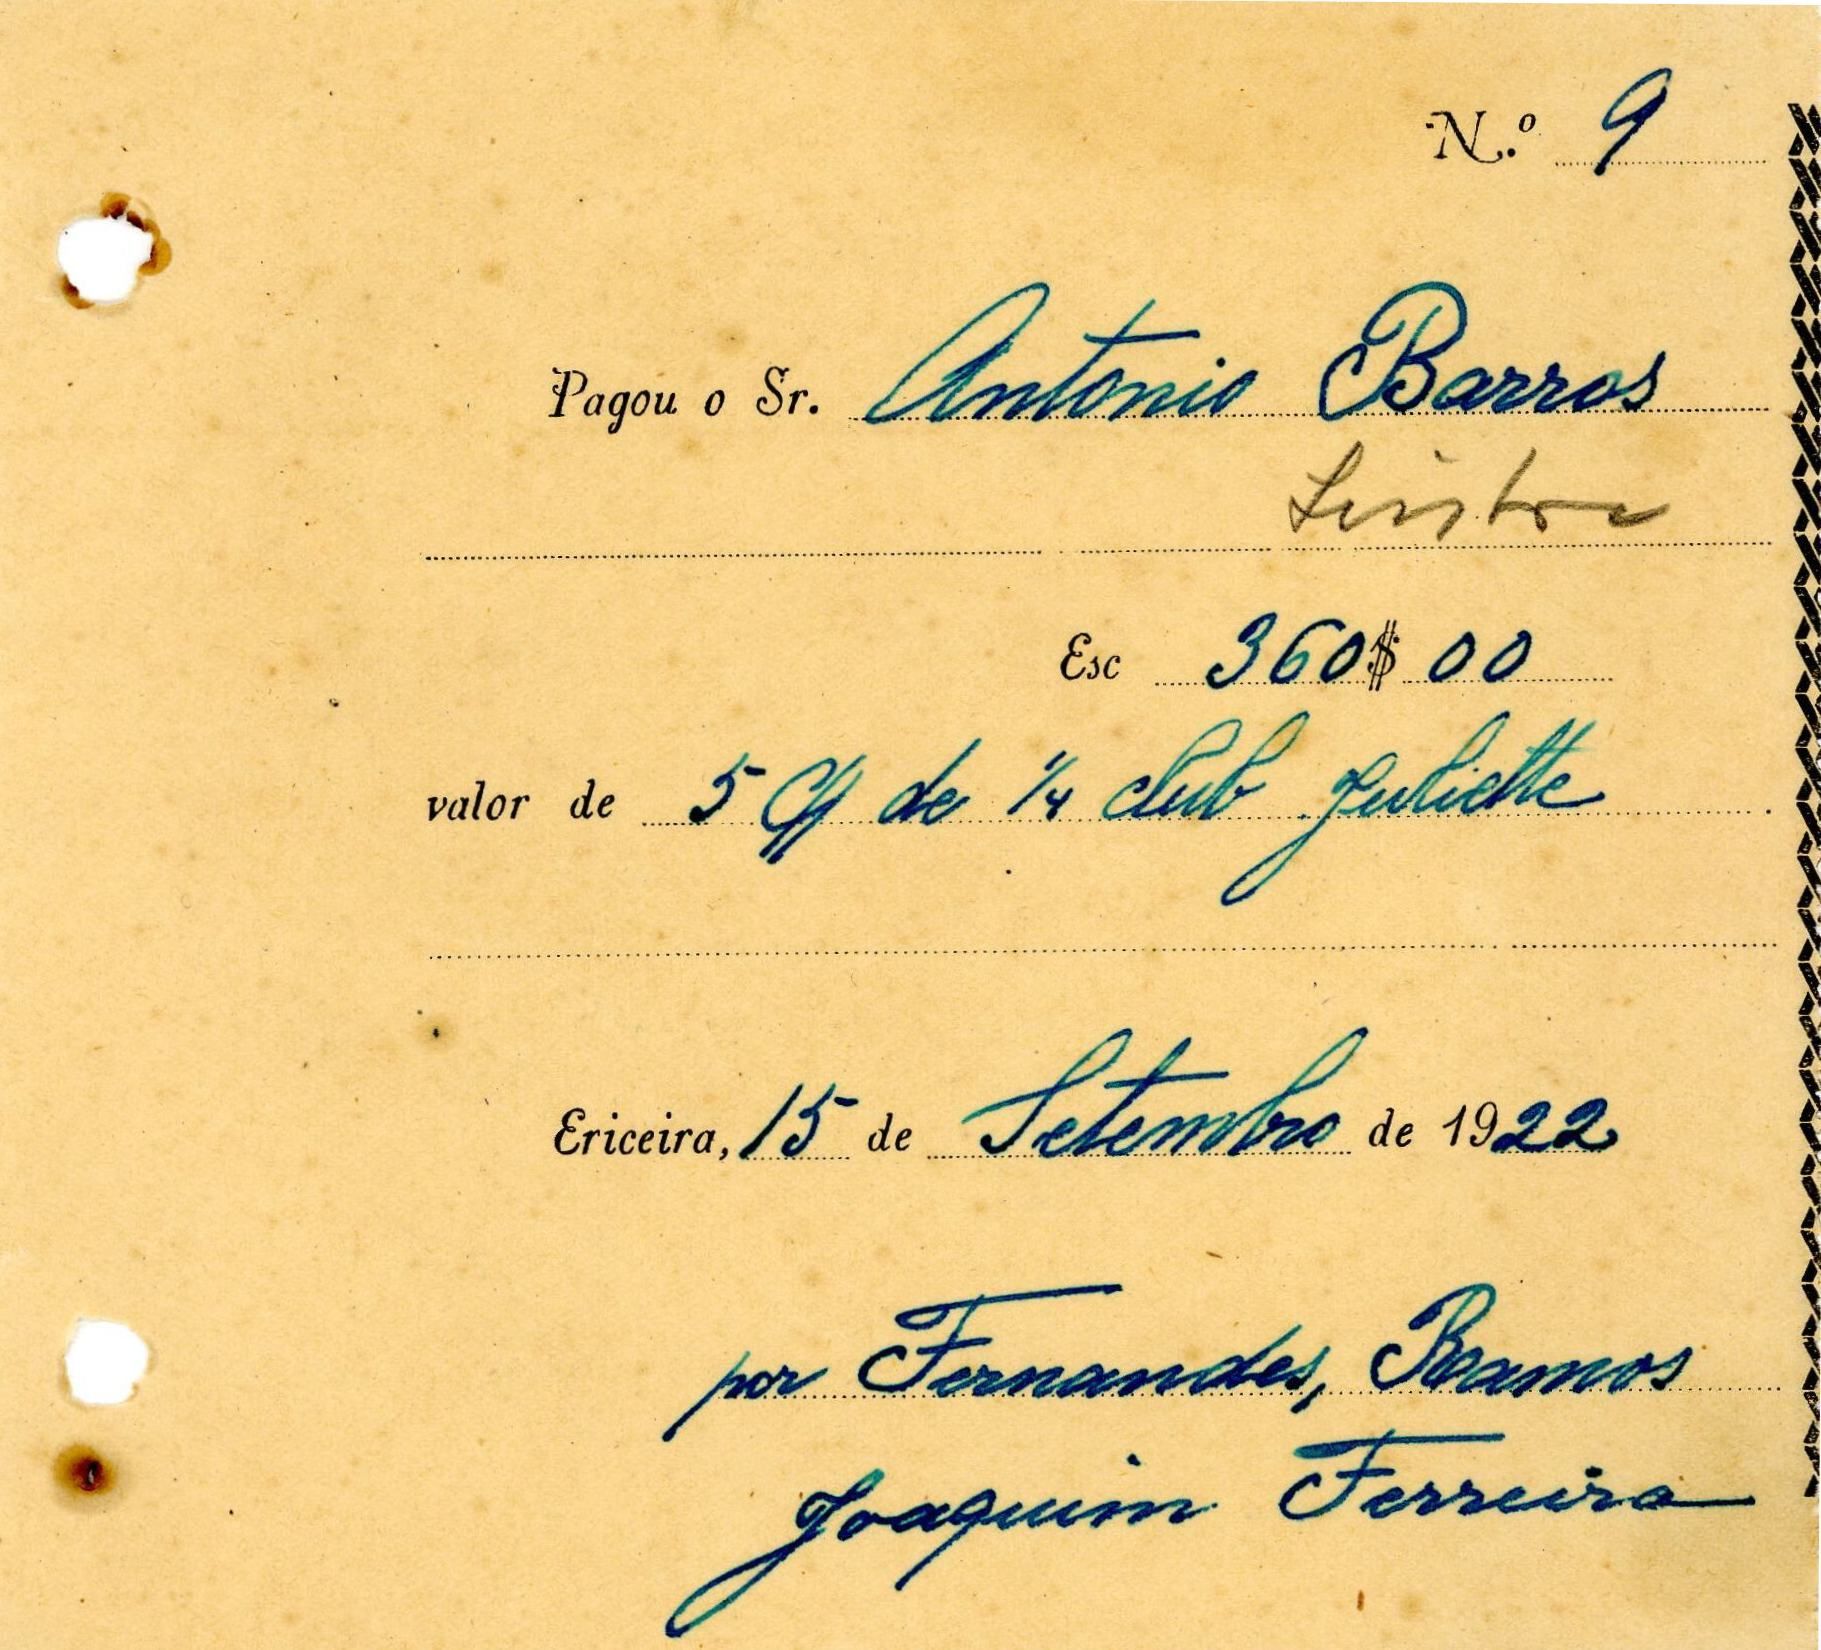 N.º 9
Pagou o Sr. Antonio Barros
Sintra
Esc 360$00
valor de 5 C/ de 1/4 club Juliette
Ericeira, 15 de Setembro de 1922
por Fernandes, Ramos
Joaquim Ferreira